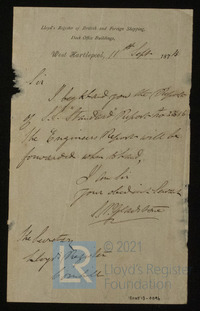 Lloyd's Register of British and Foreign Shipping,
Dock Office Buildings,
West Hartlepool, 11th Sept. 1874
Sir
I beg to hand you the Report
of S.S. "Standard" Report No
The Engineers Report will be
forwarded when to hand,
I am Sir
your obedient Servant
The Secretary
Lloyd's Register
London
© 2021
LR
Lloyd's Register
Foundation